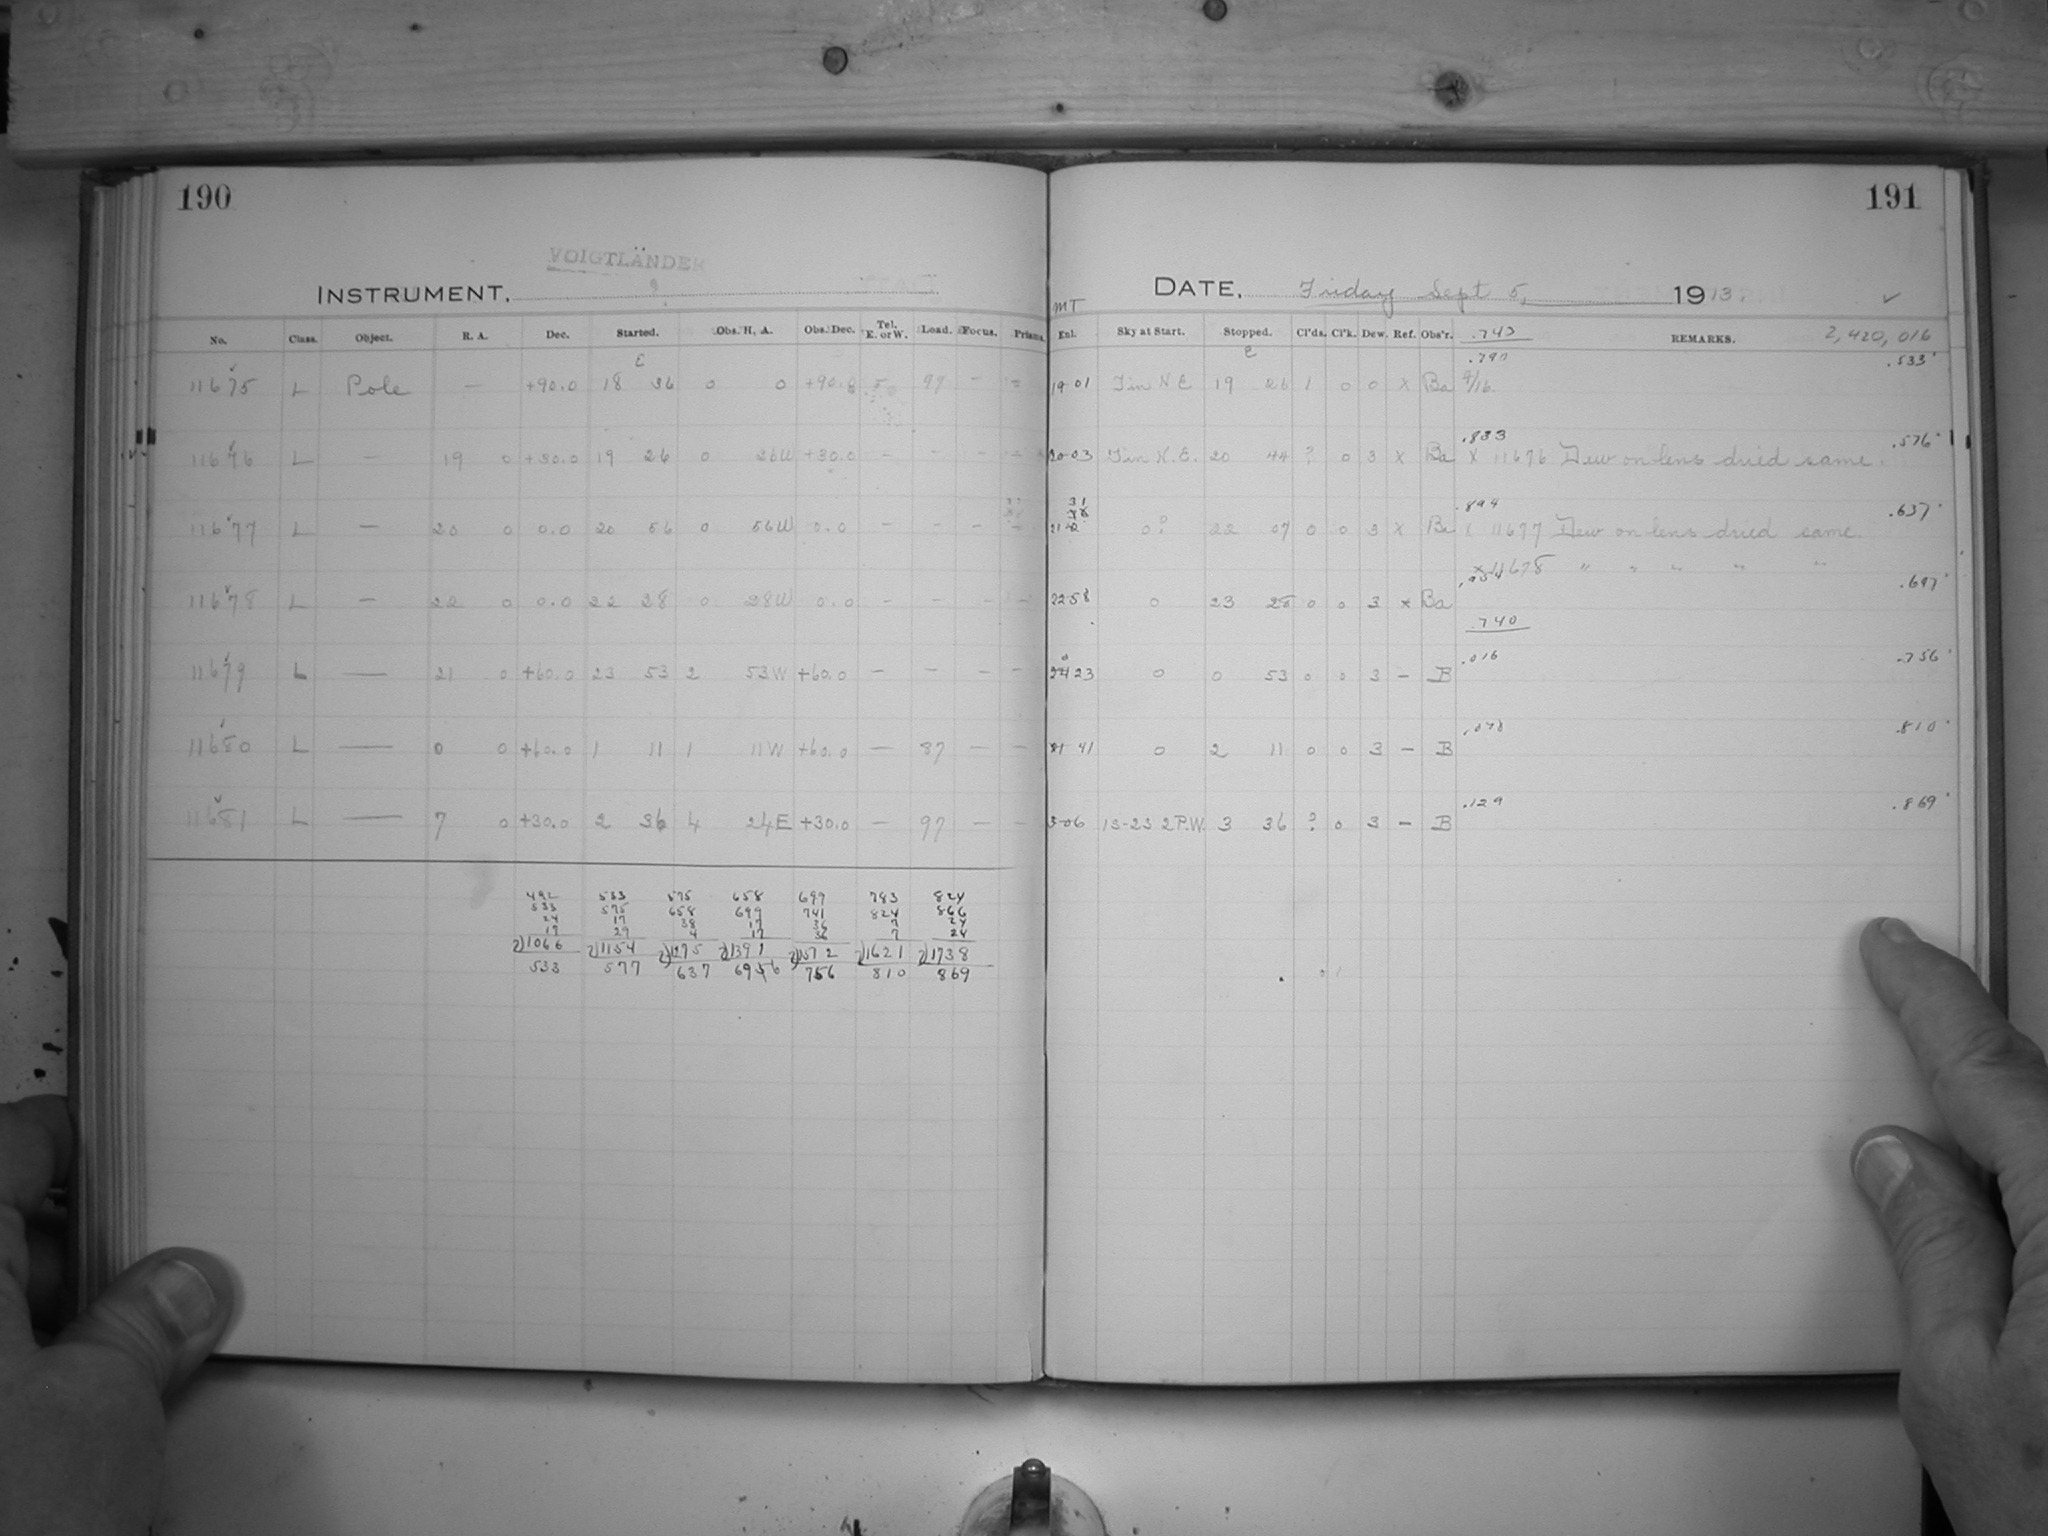 190
VOIGTLÄNDER
INSTRUMENT,
No. Class. Object. R. A. Dec. Started. Obs. H. A. Obs. Dec. Tel. E. or W. Load. Focus. Prisms.
E
11675 L Pole — +90.0 18 36 0 0 +90.0 97 —
11676 L — 19 0 +30.0 19 26 0 26W +30.0 — — — —
11677 L — 20 0 0.0 20 56 0 56W 0.0 — — — —
11678 L — 22 0 0.0 22 28 0 28W 0.0 — — — —
11679 L — 21 0 +60.0 23 53 2 53W +60.0 — — — —
11680 L — 0 0 +60.0 1 11 1 11W +60.0 — 87 — —
11681 L — 7 0 +30.0 2 36 4 24E +30.0 — 97 — —
492 533 575 658 699 783 824
533 575 658 699 741 824 866
24 17 38 17 36 7 24
17 29 4 17 36 7 24
2)1066 2)1154 2)1275 2)1391 2)1512 2)1621 2)1738
533 577 637 6956 756 810 869
191
DATE, Friday Sept 5, 1913. ✓
MT
Enl. Sky at Start. Stopped. Cl'ds. Cl'k. Dew. Ref. Obs'r. .743 REMARKS. 2,420,016
E .790 .533
19 01 1 in N E 19 26 1 0 0 x Ba 9/16
.833 .576
20 03 1 in N.E. 20 44 ? 0 3 x Ba x 11676 Dew on lens dried same.
31 .894 .637
21 0? 22 07 0 0 3 x Ba x 11677 Dew on lens dried same.
x 11678 " " " " "
.697
22 58 0 23 28 0 0 3 x Ba
.740
.016 .756
0 23 0 0 53 0 0 3 — B
.810
1 41 0 2 11 0 0 3 — B
.129 .869
3 06 13-23 2P.W. 3 36 ? 0 3 — B